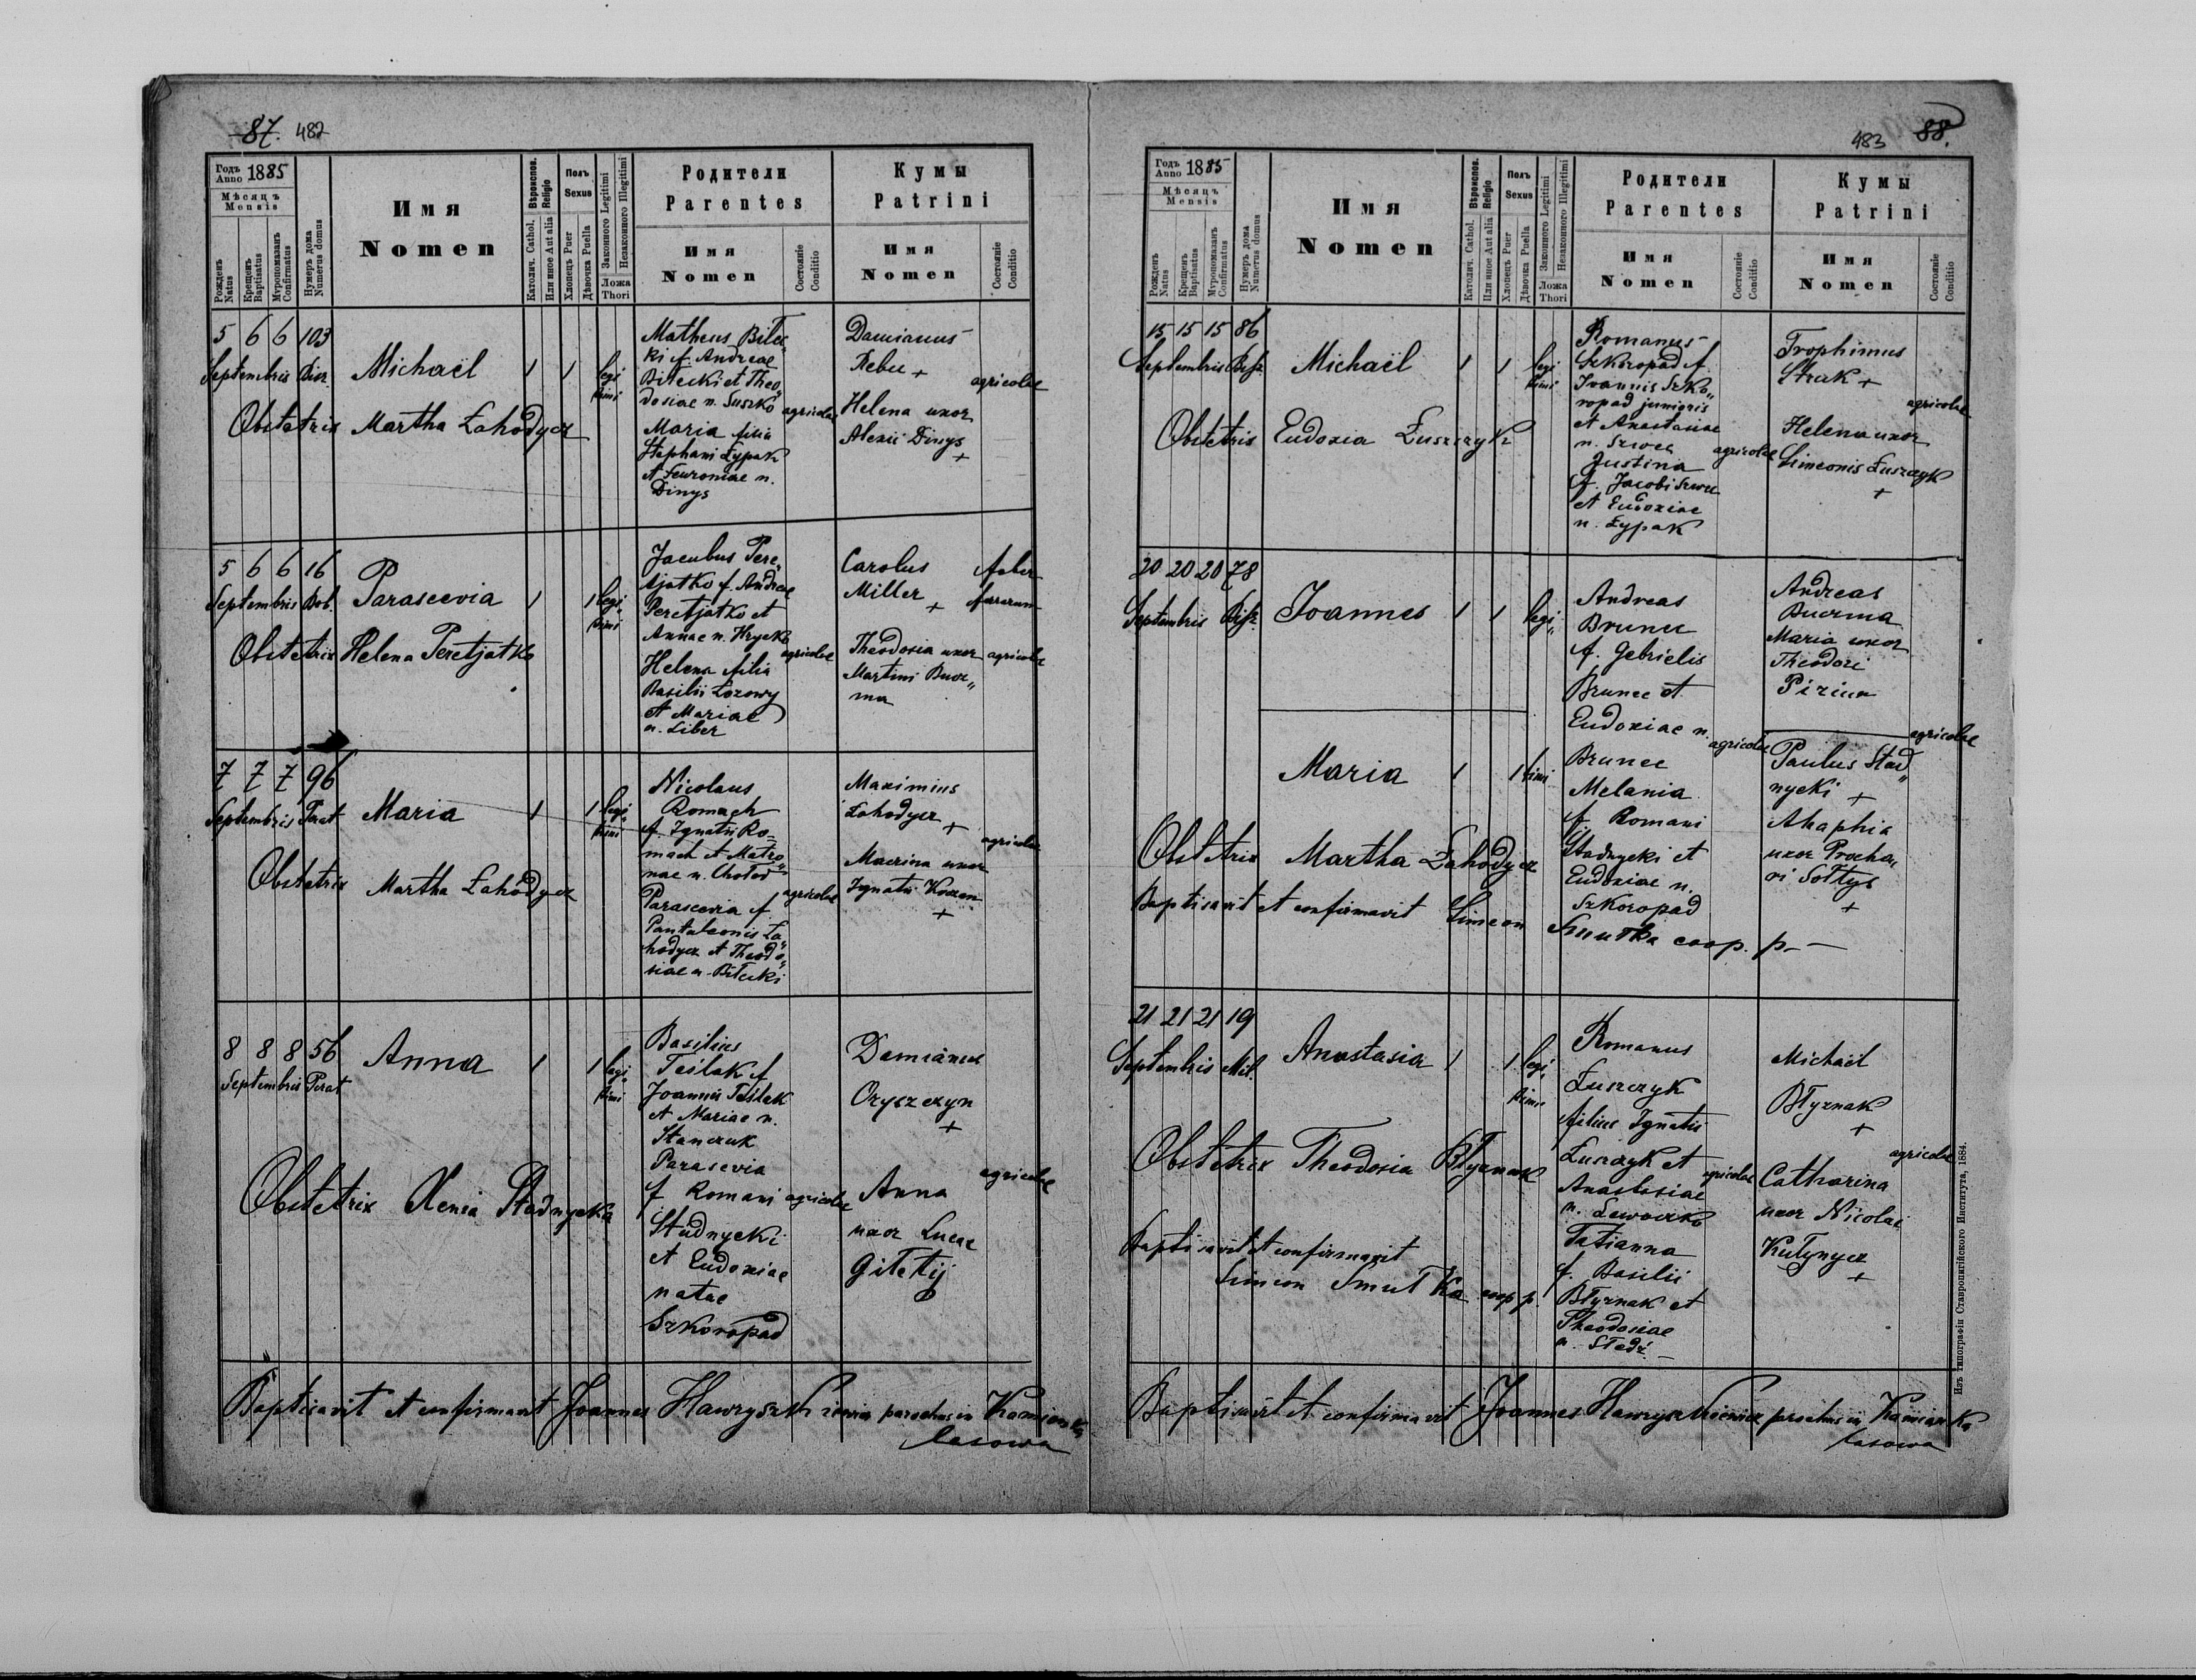 87. 482
Годъ Anno 1885
Мѣсяцъ Mensis
Рожденъ Natus
Крещенъ Baptisatus
Мѵропомазанъ Confirmatus
Нумеръ дома Numerus domus
Имя Nomen
Вѣроиспов. Religio
Католич. Cathol.
Или иное Aut alia
Полъ Sexus
Хлопецъ Puer
Дѣвочка Puella
Законного Legitimi
Незаконного Illegitimi
Ложа Thori
Родители Parentes
Имя Nomen
Состояніе Conditio
Кумы Patrini
Имя Nomen
Состояніе Conditio
5 6 6 103
Septembris
Michaël
1 1 legi
timi
Matheus Bilec
ki f. Andreae
Bilecki et Theo
dosiae n. Suszko
agricolae
Maria filia
Stephani Łypak
et Feuroniae n.
Dinys
Damianus
Rebec +
agricolae
Helena uxor
Alexii Dinys
+
Obstetrix Martha Łahodycz
5 6 6 16
Septembris Bob.
Parascevia
1 1 legi
timi
Jacubus Pere
tjatko f. Andreae
Peretjatko et
Annae n. Hrycko
agricolae
Helena filia
Basilii Łozowy
et Mariae
n. Liber
Carolus
Miller +
faber
Theodosia uxor
agricolae
Martini Bucz
ma
Obstetrix Helena Peretjatko
7 7 7 96
Septembris Perat
Maria
1 1 legi
timi
Nicolaus
Romach
f. Ignatii Ro
mach et Matro
nae n. Chołod
agricolae
Parascevia f.
Pantaleonis Ła
hodycz et Theodo
siae n. Bilecki
Maximius
Łahodycz +
agricolae
Macrina uxor
Ignatii Kozan
+
Obstetrix Martha Łahodycz
8 8 8 56
Septembris Perat
Anna
1 1 legi
timi
Basilius
Teślak f.
Joannis Teślak
et Mariae n.
Stanczuk
Parasevia
f. Romani
agricolae
Stadnycki
et Eudoxiae
natae
Szkoropad
Damianus
Oryszczyn
+
agricolae
Anna
uxor Lucae
Giletij
Obstetrix Xenia Stadnycka
Baptisavit et confirmavit Joannes Hawryszkiewicz parochus in Kamionka
lasowa
483 88.
Годъ Anno 1885
Мѣсяцъ Mensis
Рожденъ Natus
Крещенъ Baptisatus
Мѵропомазанъ Confirmatus
Нумеръ дома Numerus domus
Имя Nomen
Вѣроиспов. Religio
Католич. Cathol.
Или иное Aut alia
Полъ Sexus
Хлопецъ Puer
Дѣвочка Puella
Законного Legitimi
Незаконного Illegitimi
Ложа Thori
Родители Parentes
Имя Nomen
Состояніе Conditio
Кумы Patrini
Имя Nomen
Состояніе Conditio
15 15 15 86
Septembris
Michaël
1 1 legi
timi
Romanus
Szkoropad f.
Joannis Szko
ropad junioris
et Anastasiae
n. Szwec
agricolae
Justina
f. Jacobi Szwec
et Eudoxiae
n. Łypak
Trophimus
Struk +
agricolae
Helena uxor
Simeonis Łuszczyk
+
Obstetrix Eudoxia Łuszczyk
20 20 20 78
Septembris
Joannes
1 1 legi
Andreas
Brunec
f. Gabrielis
Brunec et
Eudoxiae n.
agricolae
Brunec
Melania
f. Romani
Stadnycki et
Eudoxiae n.
Szkoropad
Andreas
Buczma
Maria uxor
Theodori
Maria
1 1 timi
agricolae
Paulus Stad
nycki +
Ahaphia
uxor Procho
ri Sołtys
+
Obstetrix Martha Łahodycz
Baptisavit et confirmavit Simeon Smutka coop. p.
21 21 21 19
Septembris Mił.
Anastasia
1 1 legi
timi
Romanus
Łuszczyk
filius Ignatii
Łuszczyk et
agricolae
Anastasiae
n. Lewoczko
Tatianna
f. Basilii
Błyznak et
Theodosiae
n. Sledź
Michaël
Błyznak
+
agricolae
Catharina
uxor Nicolai
Kułynycz
+
Obstetrix Theodosia Błyznak
Baptisavit et confirmavit
Simeon Smutka coop. p.
Baptisavit et confirmavit Joannes Hawryszkiewicz parochus in Kamionka
lasowa
Изъ типографіи Ставропигійского Института, 1884.